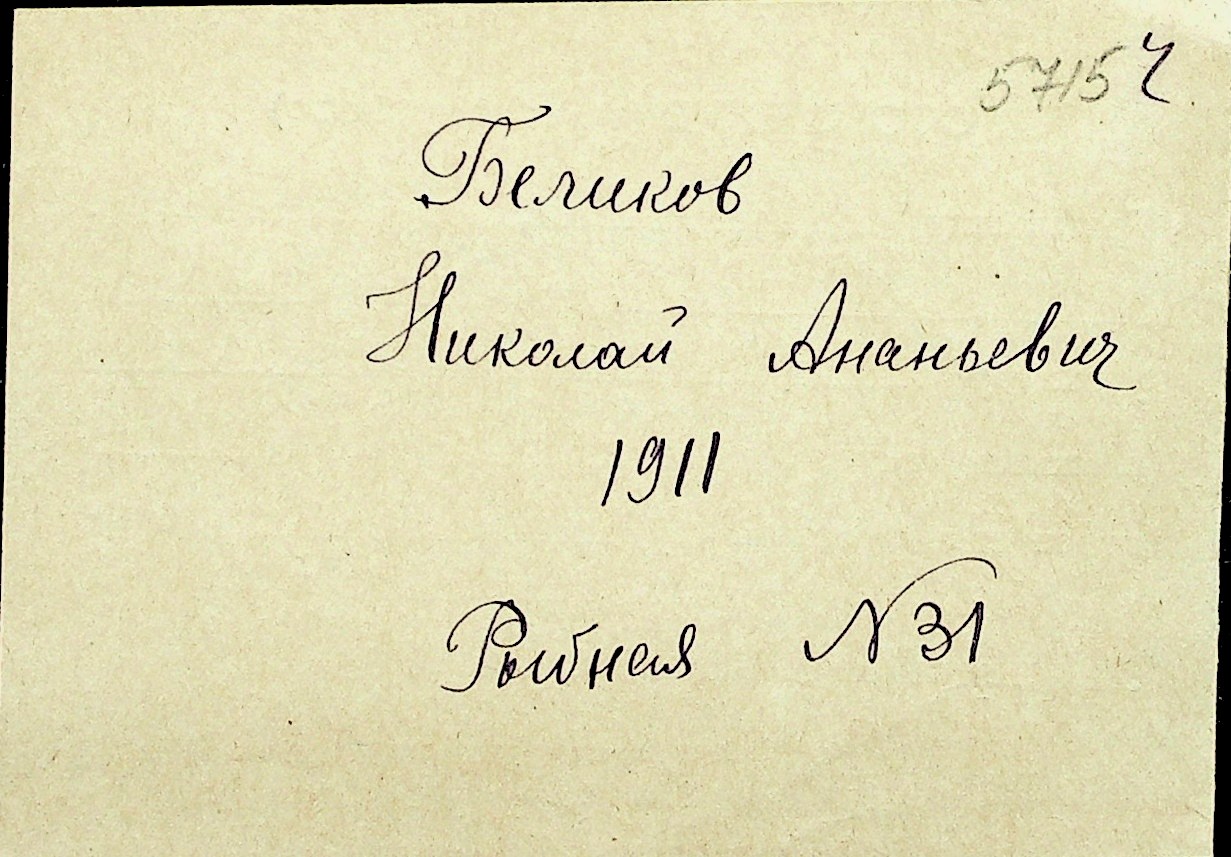 5715 ч
Беликов
Николай Ананьевич
1911
Рыбная N 31